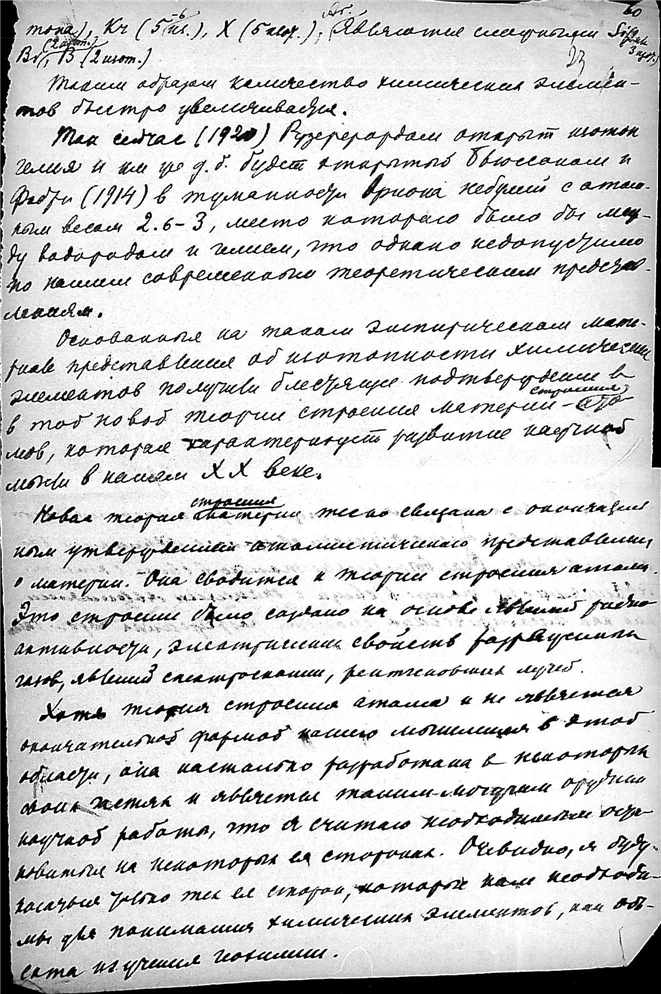 60
топа), Kr (5-6 из.), X (5 изот.), являются сложными
Br (2 изот.), B (2 изот.)
23
Таким образом количество химических элемен-
тов быстро увеличивается.
Так сейчас (1920) Рузерфордом открыт изотоп
гелия и им же д. б. будет открытый Бюиссоном и
Фабри (1914) в туманности Ориона небулий с атом-
ным весом 2.6-3, место которого было бы меж-
ду водородом и гелием, что однако недопустимо
по нашим современным теоретическим представ-
лениям.
Основанные на таком эмпирическом мате-
риале представления об изотопности химических
элементов получили блестящее подтверждение в
в той новой теории строения материи - строения ато-
мов, которая характеризует развитие научной
мысли в нашем XX веке.
Новая теория строения материи тесно связана с окончатель
ным утверждением атомистического представления
о материи. Она сводится к теории строения атома.
Это строение было создано на основе явлений радио-
активности, электрических свойств разреженных
газов, явлений спектроскопии, рентгеновских лучей.
Хотя теория строения атома и не является
окончательной формой нашего мышления в этой
области, она настолько разработана в некоторых
своих частях и является таким могучим орудием
научной работы, что я считаю необходимым оста-
новиться на некоторых ее сторонах. Очевидно, я буду
касаться только тех ее сторон, которые нам необходи-
мы для понимания химических элементов, как объ-
екта изучения геохимии.